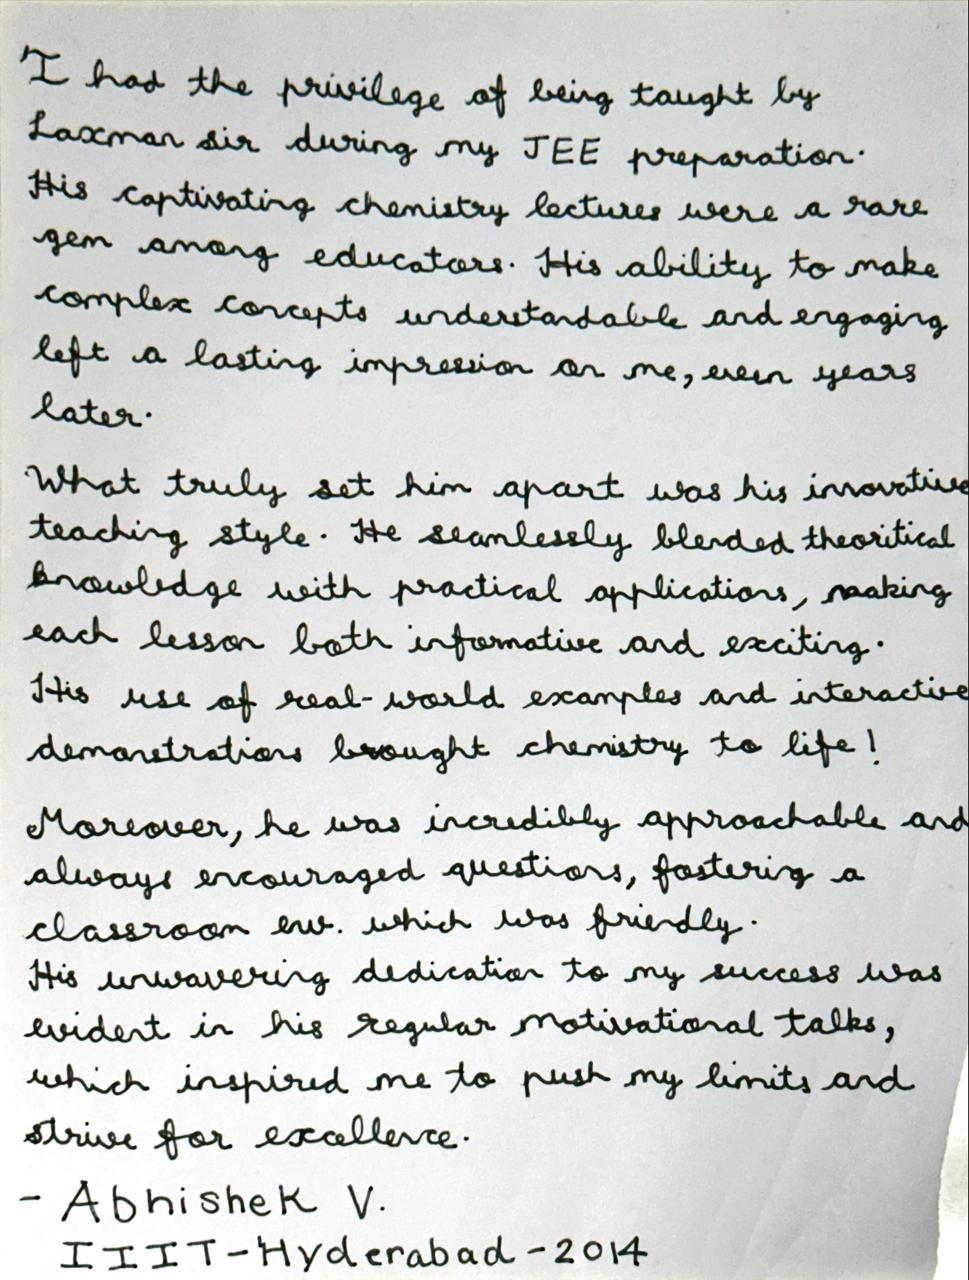 I had the privilege of being taught by
Laxman sir during my JEE preparation.
His captivating chemistry lectures were a rare
gem among educators. His ability to make
complex concepts understandable and engaging
left a lasting impression on me, even years
later.
What truly set him apart was his innovative
teaching style. He seamlessly blended theoritical
knowledge with practical applications, making
each lesson both informative and exciting.
His use of real-world examples and interactive
demonstrations brought chemistry to life!
Moreover, he was incredibly approachable and
always encouraged questions, fostering a
classroom env. which was friendly.
His unwavering dedication to my success was
evident in his regular motivational talks,
which inspired me to push my limits and
strive for excellence.
- Abhishek V.
IIIT-Hyderabad-2014